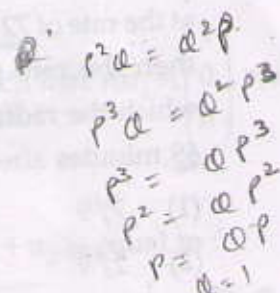 P²Q = Q²P.
P³Q = Q²P³
P³ = QP³
P² = QP²
P = QP
Q = 1